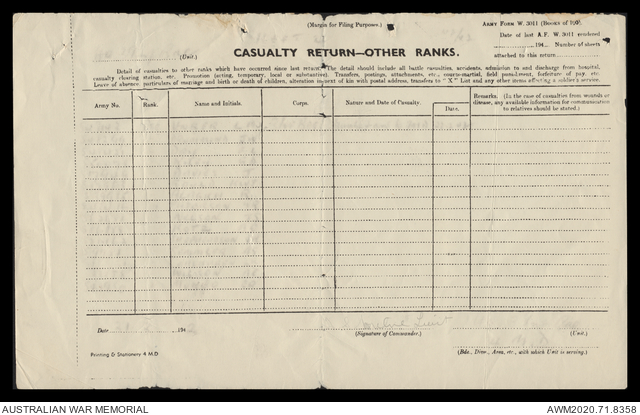 (Margin for Filing Purposes.)
ARMY FORM W. 3011 (BOOKS OF 100).
Date of last A.F. W. 3011 rendered
194 Number of sheets
attached to this return
(Unit.)
CASUALTY RETURN—OTHER RANKS.
Detail of casualties to other ranks which have occurred since last return. The detail should include all battle casualties, accidents, admission to and discharge from hospital,
casualty clearing station, etc. Promotion (acting, temporary, local or substantive). Transfers, postings, attachments, etc., courts-martial, field punishment, forfeiture of pay, etc.
Leave of absence, particulars of marriage and birth or death of children, alteration in next of kin with postal address, transfers to "X" List and any other items affecting a soldier's service.
Army No.
Rank.
Name and Initials.
Corps.
Nature and Date of Casualty.
Date.
Remarks. (In the case of casualties from wounds or
disease, any available information for communication
to relatives should be stated.)
Date 194
(Signature of Commander.)
(Unit.)
(Bde., Divn., Area, etc., with which Unit is serving.)
Printing & Stationery 4 M.D
AUSTRALIAN WAR MEMORIAL
AWM2020.71.8358